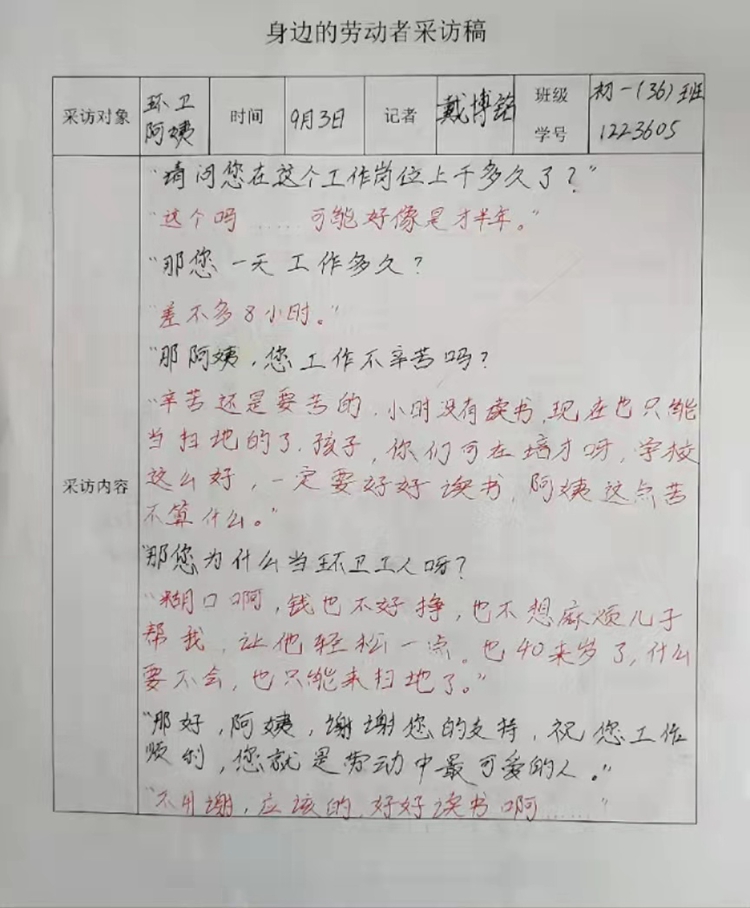 身边的劳动者采访稿
采访对象 环卫阿姨 时间 9月3日 记者 戴博铭 班级学号 初一(36)班 1223605
采访内容
"请问您在这个工作岗位上干多久了?"
"这个吗……可能好像是才半年。"
"那您一天工作多久?
"差不多8小时。"
"那阿姨,您工作不辛苦吗?
"辛苦还是要苦的,小时没有读书,现在也只能
当扫地的了,孩子,你们可在培才呀,学校
这么好,一定要好好读书,阿姨这点苦
不算什么。"
"那您为什么当环卫工人呀?
"糊口啊,钱也不好挣,也不想麻烦儿子
帮我,让他轻松一点。也40来岁了,什么
要不会,也只能来扫地了。"
"那好,阿姨,谢谢您的支持,祝您工作
顺利,您就是劳动中最可爱的人。"
"不用谢,应该的,好好读书啊……"